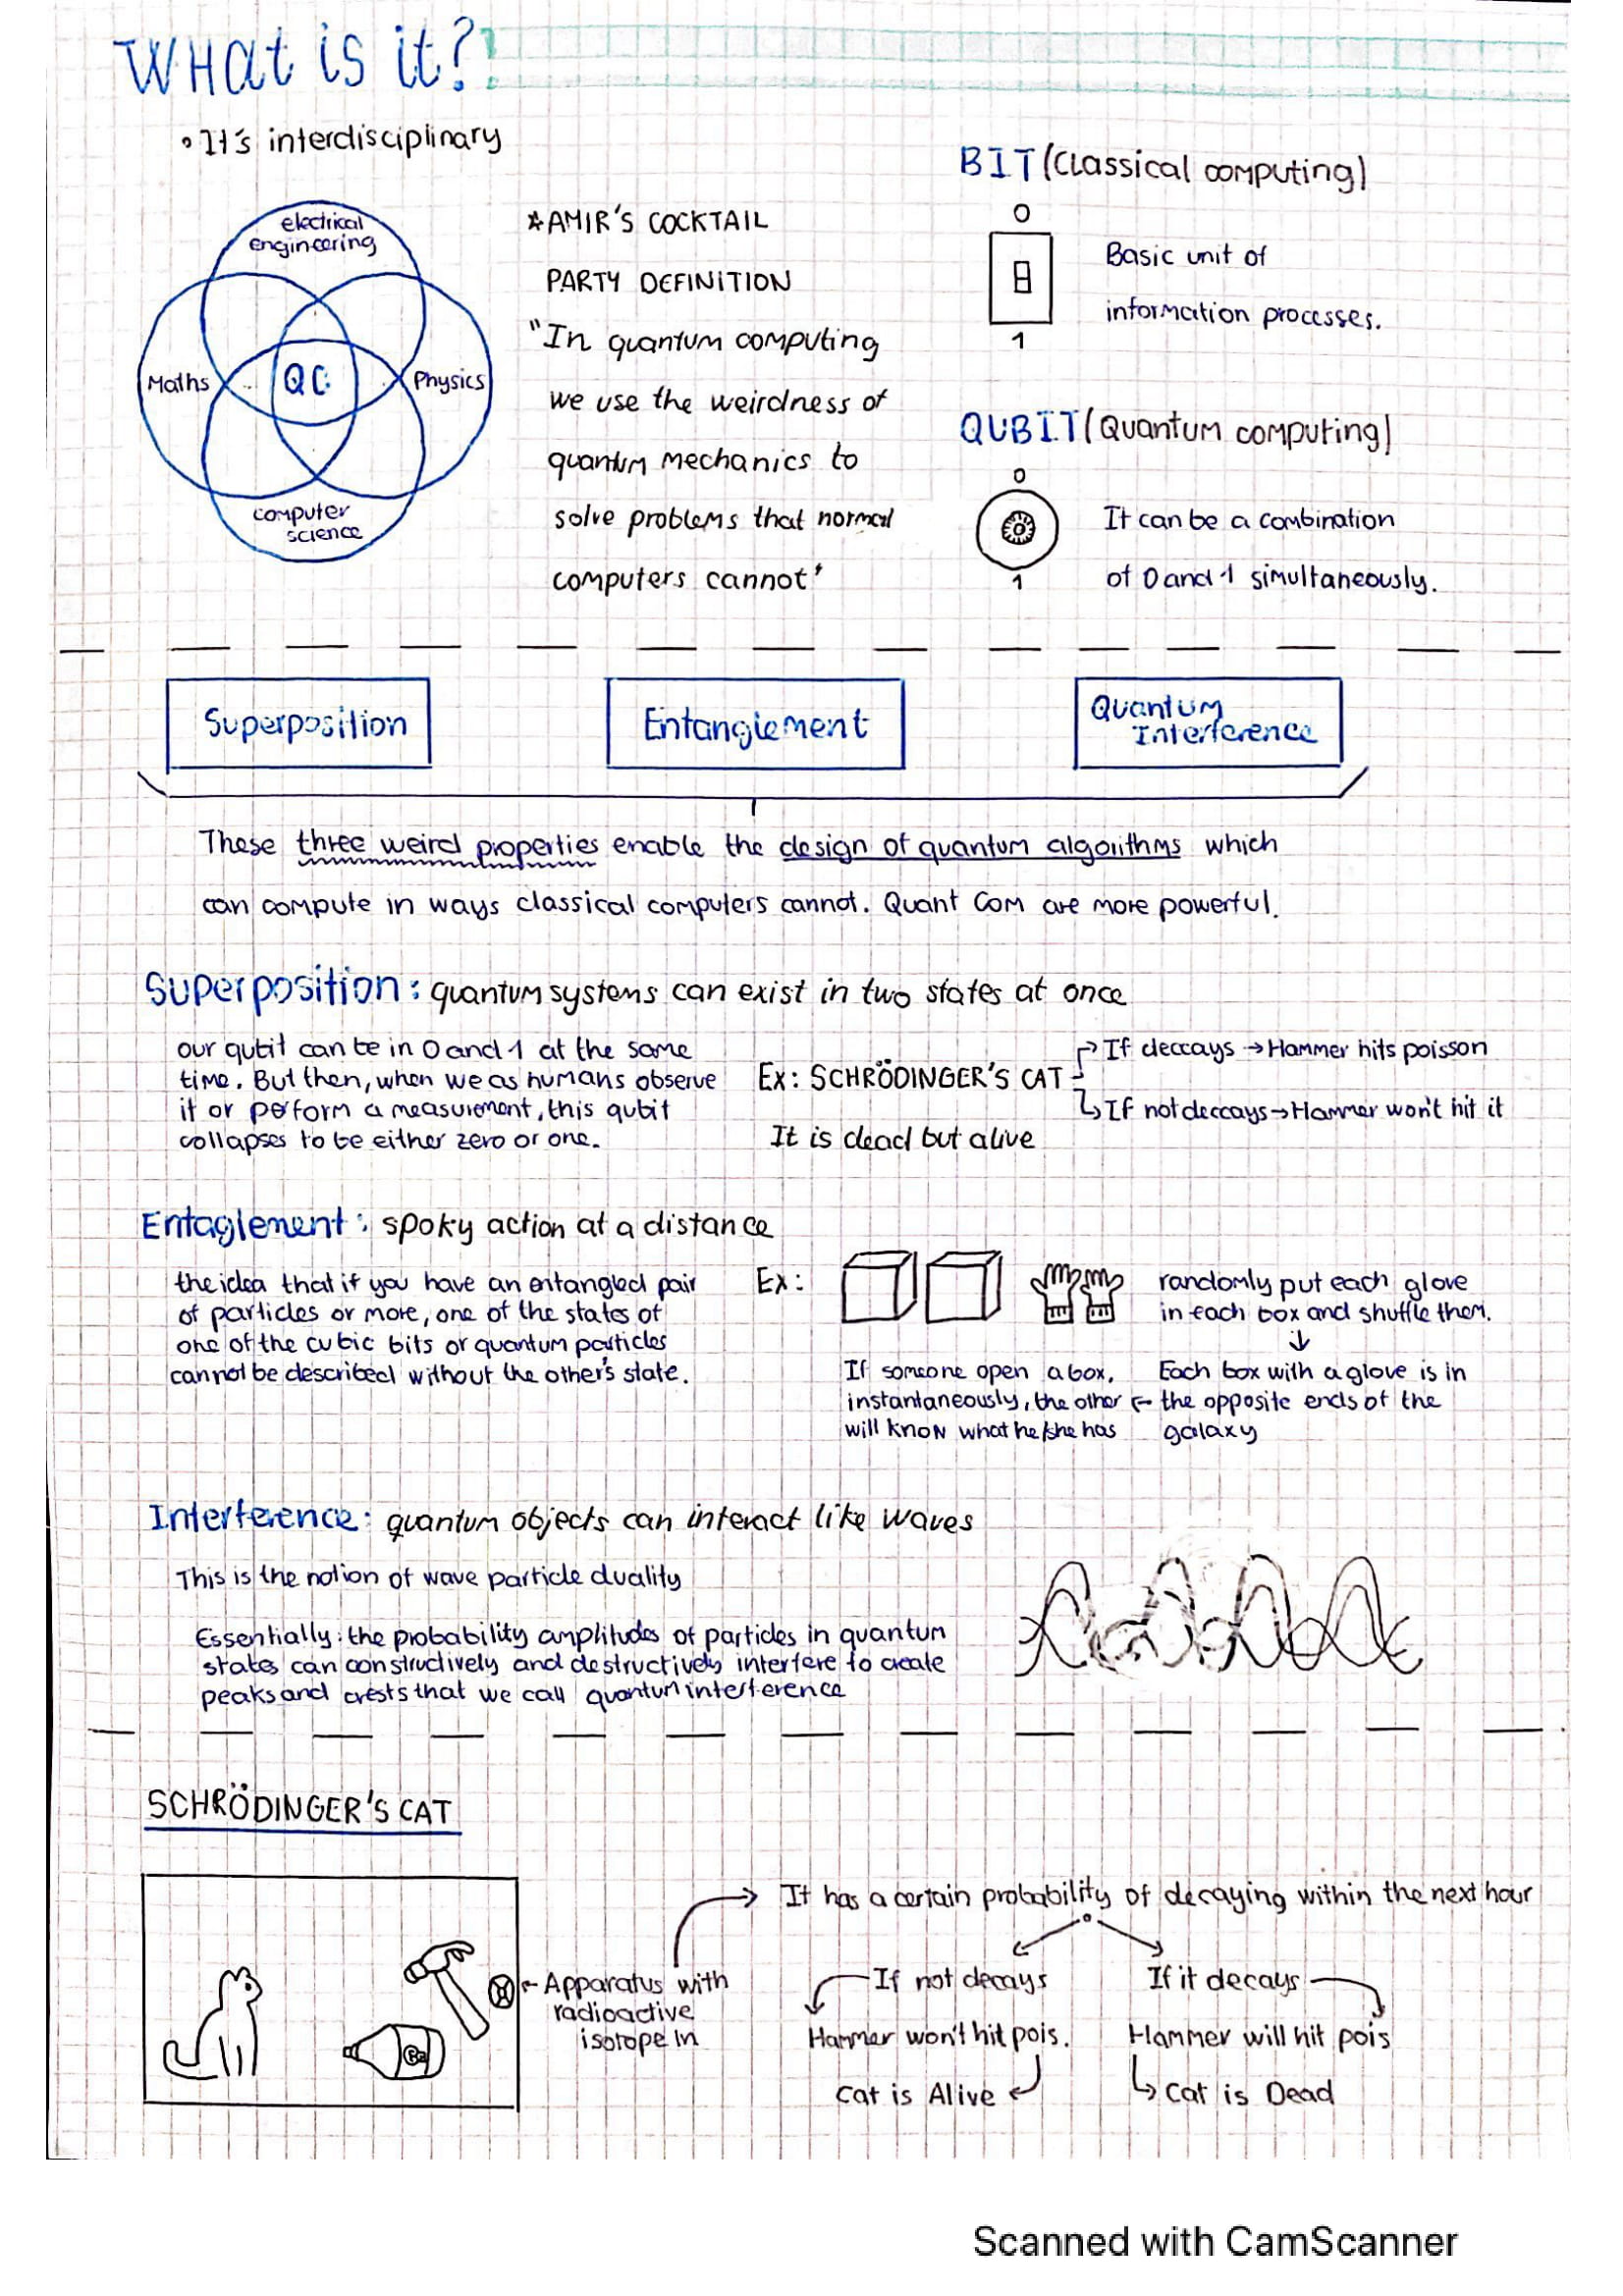 What is it?
• It's interdisciplinary
electrical
engineering
Maths
QC
Physics
computer
science
*AMIR'S COCKTAIL
PARTY DEFINITION
"In quantum computing
we use the weirdness of
quantum mechanics to
solve problems that normal
computers cannot"
BIT (Classical computing)
0
1
Basic unit of
information processes.
QUBIT (Quantum computing)
0
1
It can be a combination
of 0 and 1 simultaneously.
Superposition
Entanglement
Quantum
Interference
These three weird properties enable the design of quantum algorithms which
can compute in ways classical computers cannot. Quant Com are more powerful.
Superposition: quantum systems can exist in two states at once
our qubit can be in 0 and 1 at the same
time. But then, when we as humans observe
it or perform a measurement, this qubit
collapses to be either zero or one.
Ex: SCHRÖDINGER'S CAT
If deccays → Hammer hits poisson
If not deccays → Hammer won't hit it
It is dead but alive
Entaglement: spoky action at a distance
the idea that if you have an entangled pair
of particles or more, one of the states of
one of the cubic bits or quantum particles
cannot be described without the other's state.
Ex:
randomly put each glove
in each box and shuffle them.
↓
Each box with a glove is in
← the opposite ends of the
galaxy
If someone open a box,
instantaneously, the other
will know what he/she has
Interference: quantum objects can interact like waves
This is the notion of wave particle duality
Essentially: the probability amplitudes of particles in quantum
states can constructively and destructively interfere to create
peaks and crests that we call quantum interference
SCHRÖDINGER'S CAT
← Apparatus with
radioactive
isotope in
It has a certain probability of decaying within the next hour
If not decays
Hammer won't hit pois.
Cat is Alive
If it decays
Hammer will hit pois
Cat is Dead
Scanned with CamScanner